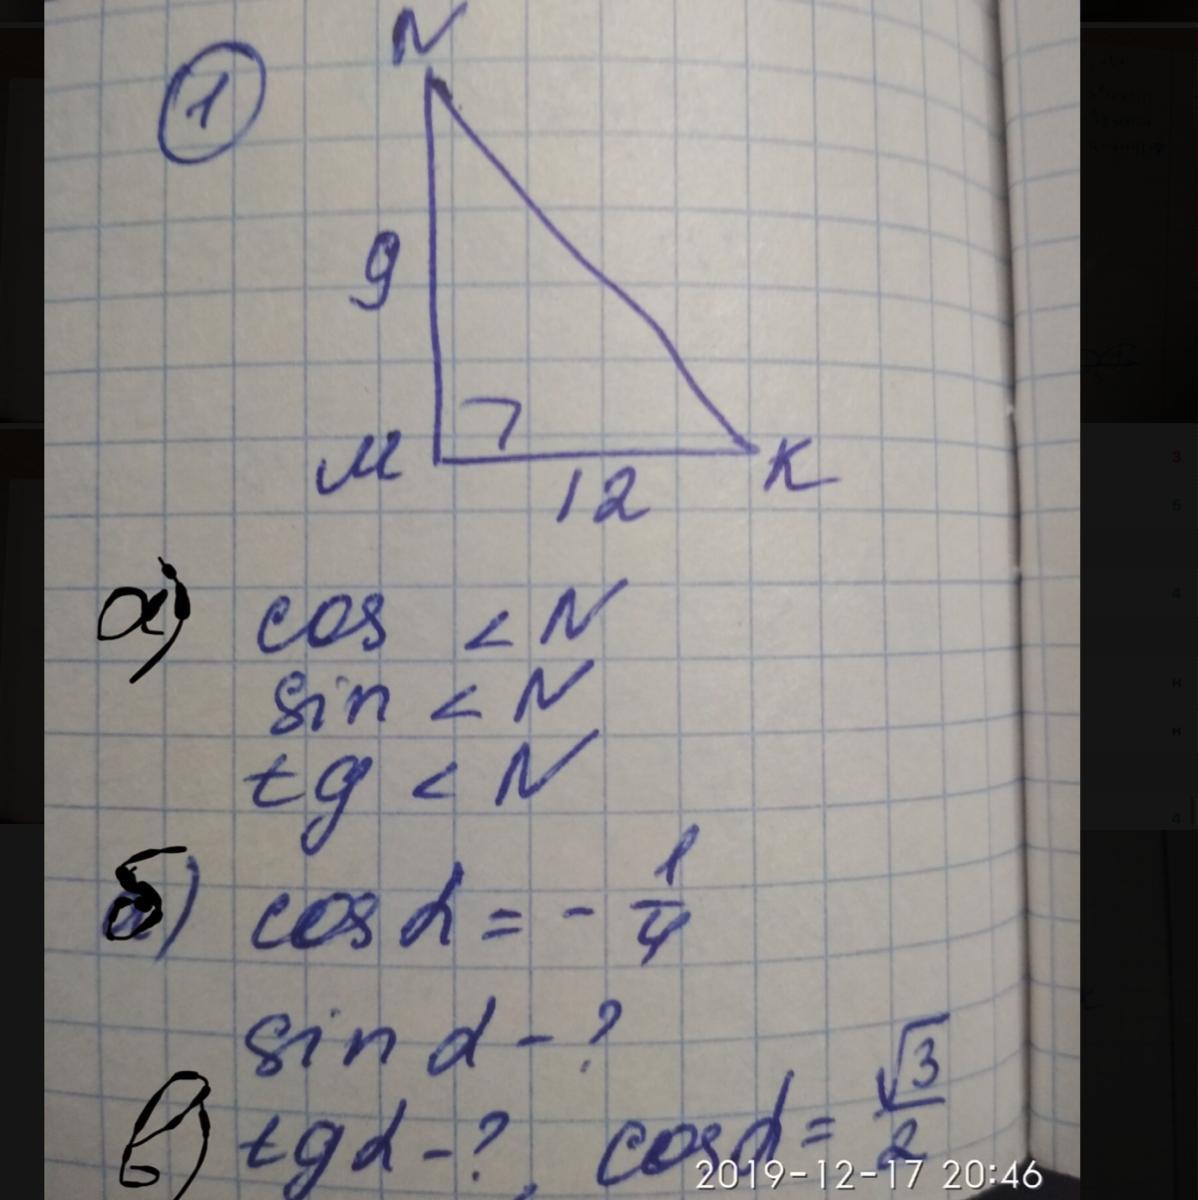 1
N
9
M
12
K
а) cos < N
sin < N
tg < N
б) cos α = - 1/4
sin α - ?
в) tg α - ?, cos α = √3/2
2019-12-17 20:46